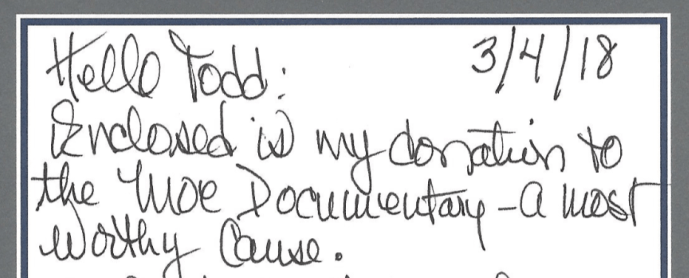 Hello Todd:
3/4/18
Enclosed is my donation to
the Moe Documentary - a most
worthy Cause.